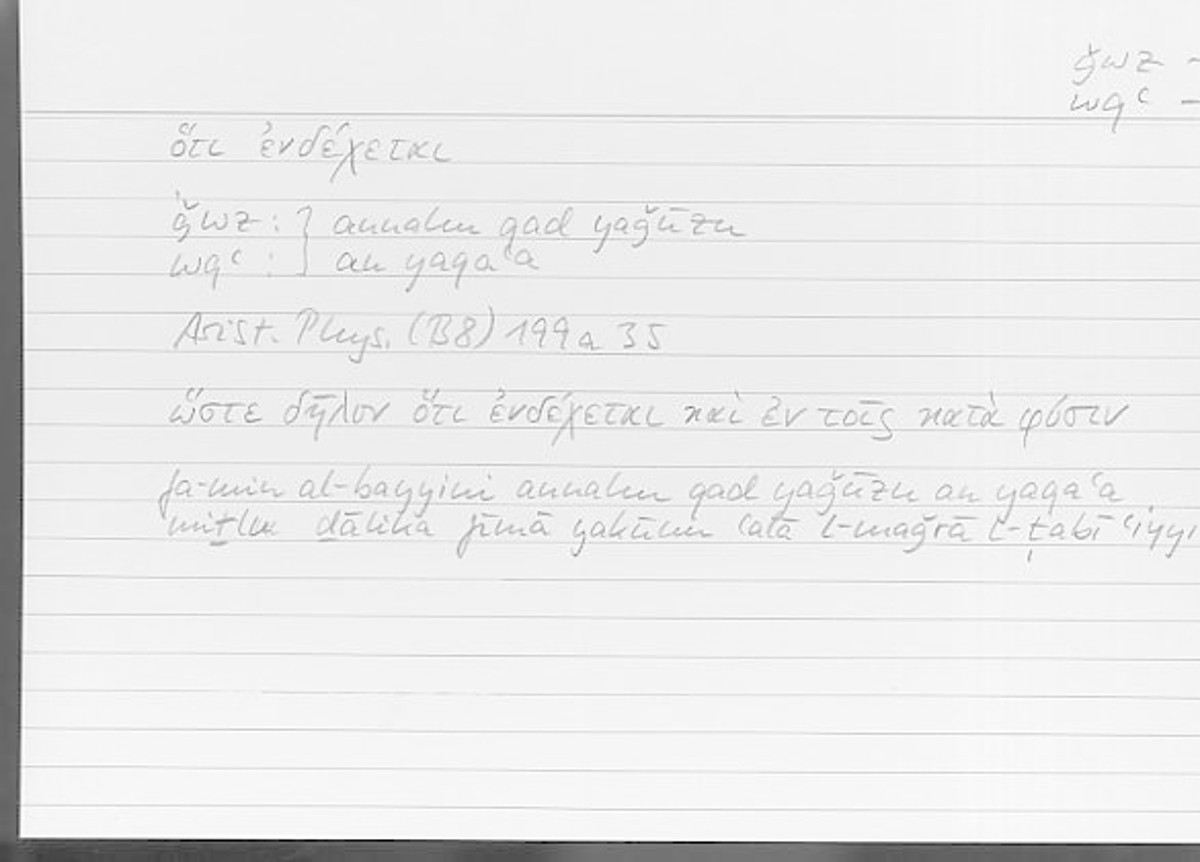 ǧwz -
wqʿ -
ὅτι ἐνδέχεται
ǧwz : } annahu qad yaǧūzu
wqʿ : } an yaqaʿa
Arist. Phys. (B8) 199a 35
ὥστε δῆλον ὅτι ἐνδέχεται καὶ ἐν τοῖς κατὰ φύσιν
fa-min al-bayyini annahu qad yaǧūzu an yaqaʿa
miṯlu ḏālika fīmā yakūnu ʿalā l-maǧrā ṭ-ṭabīʿiyyi